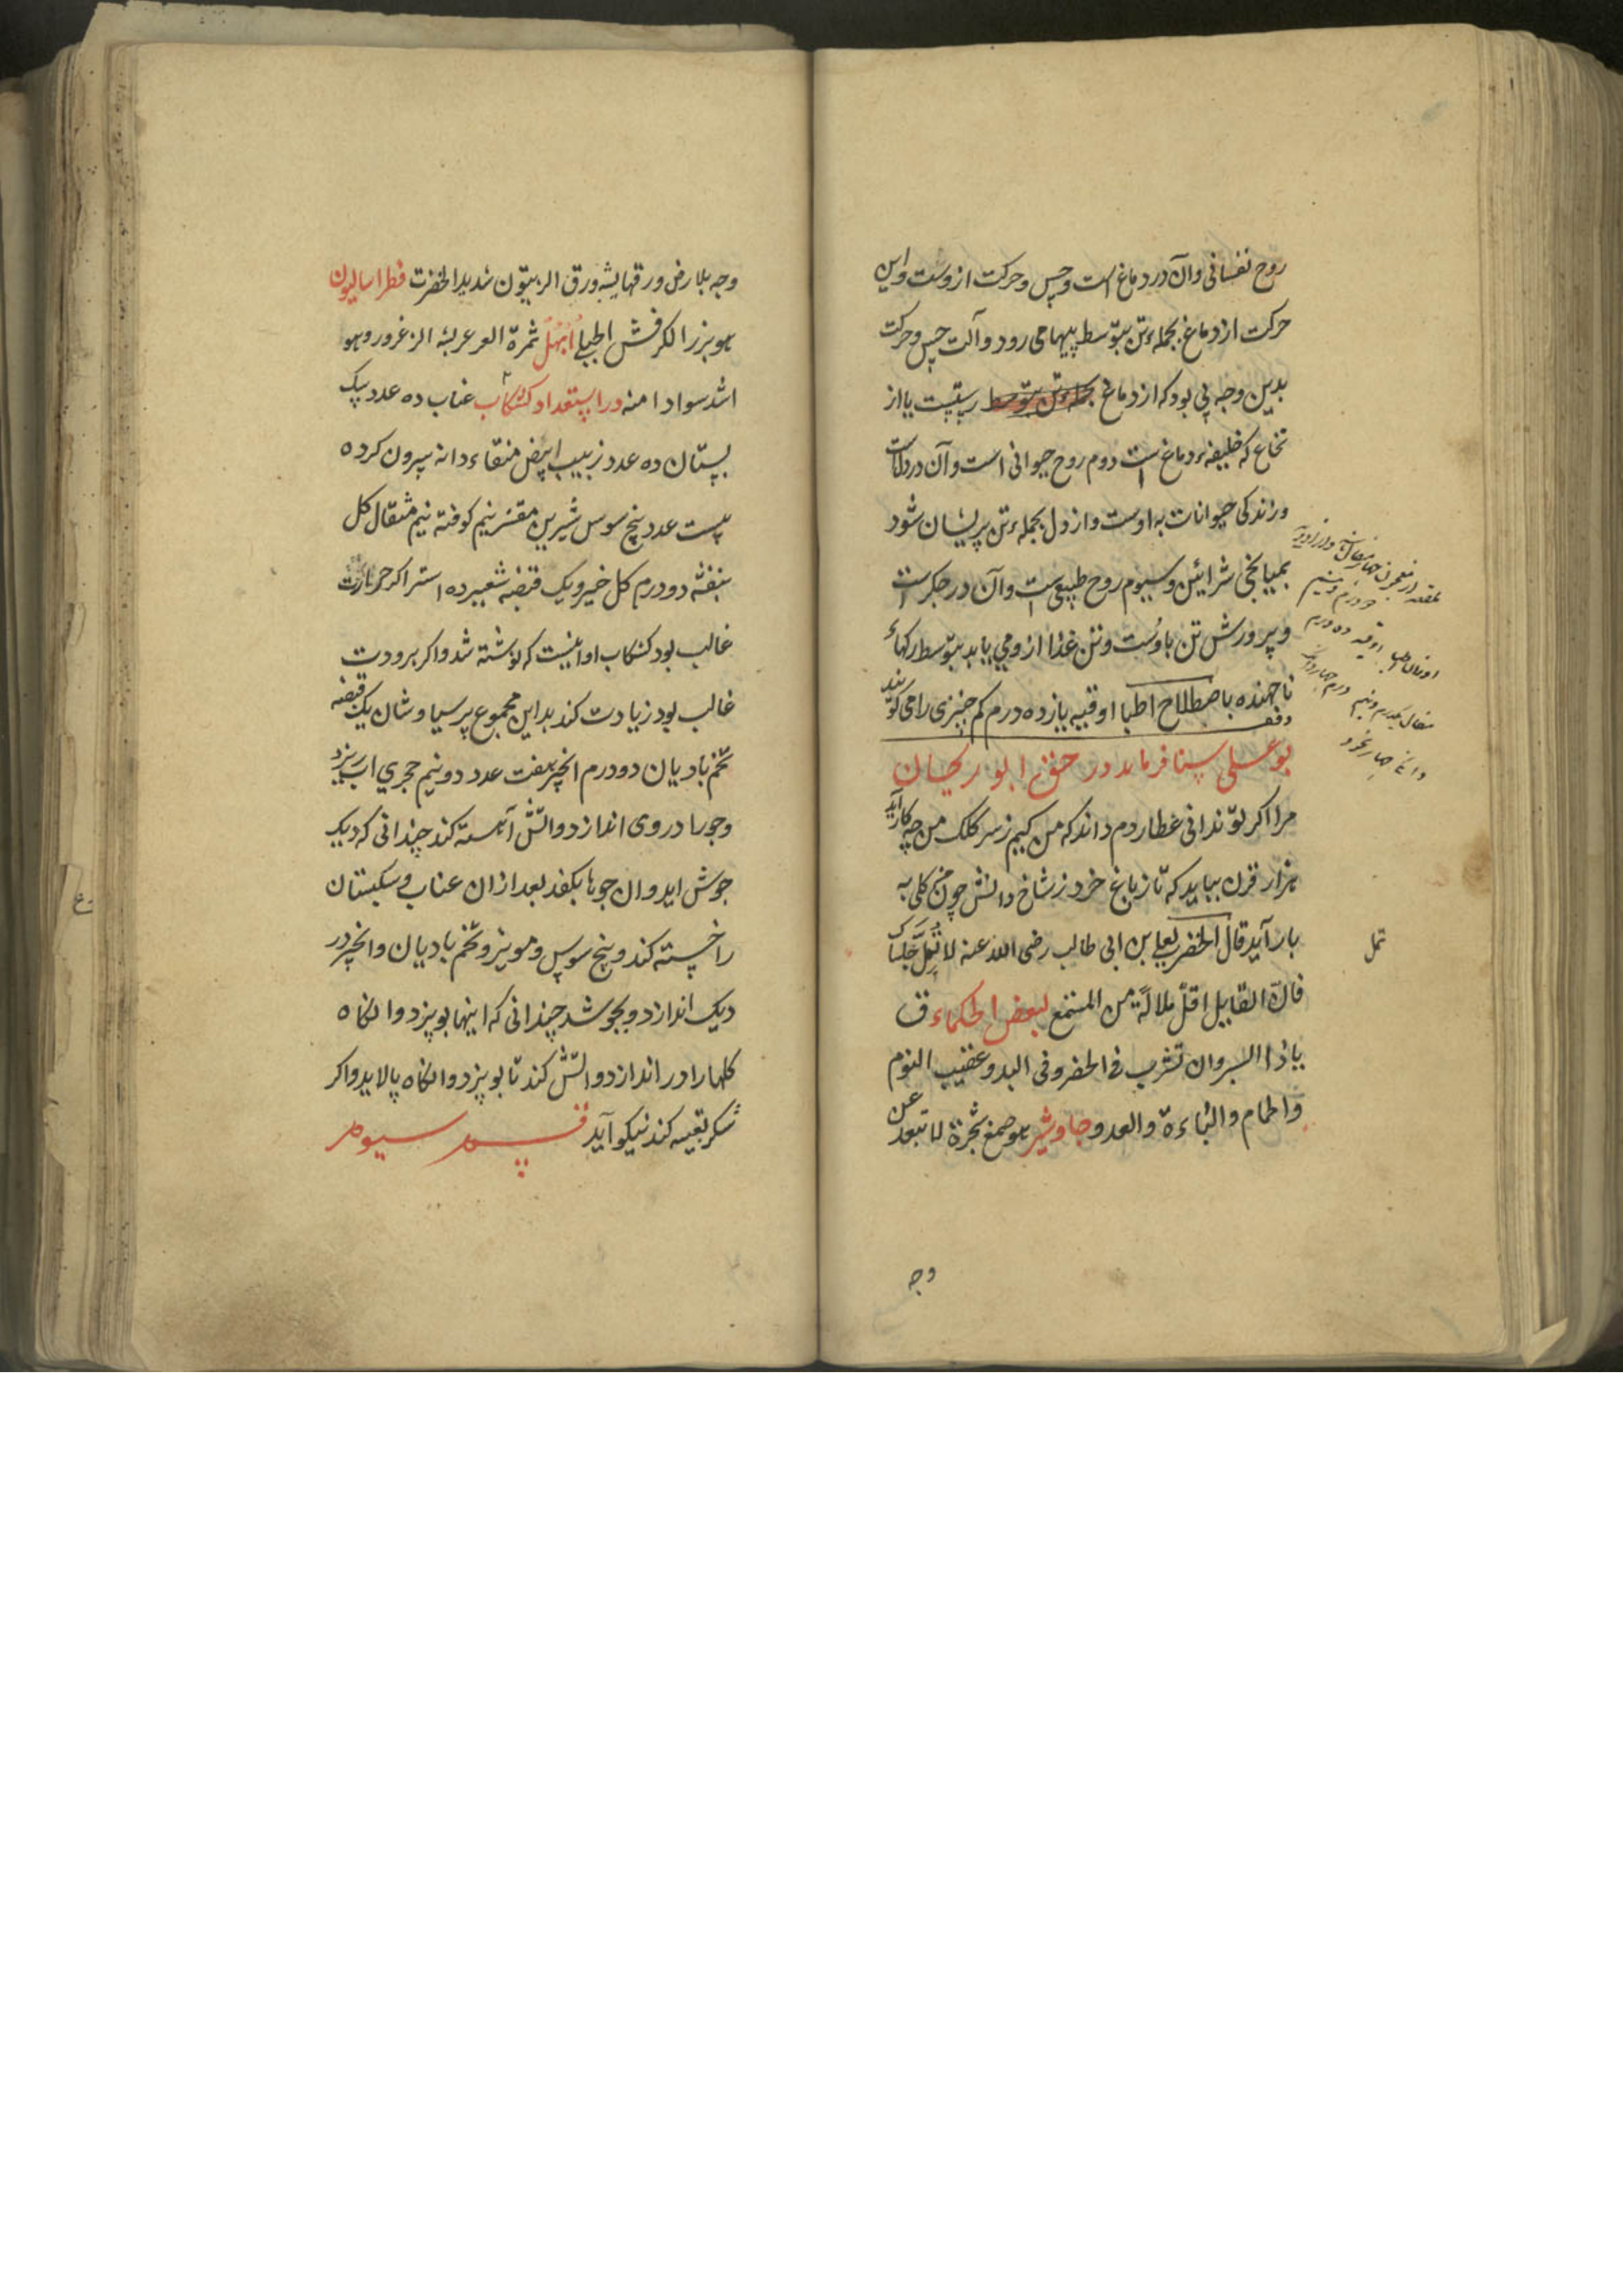 روح نفسانی وآن در دماغ است وحس وحرکت ازوست واین
حرکت از دماغ بجملهٔ تن بتوسط پیهامی رود وآلت حس وحرکت
بدین وجه پی بود که از دماغ بجملهٔ تن بتوسط رستیست یا از
نخاع که خلیفهٔ دماغ است دوم روح حیوانی است وآن در دلاست
وزندکی حیوانات به اوست وازدل بجملهٔ تن پریشان شود
بمیانجی شرائین وسیوم روح طبیعیست وآن در جکر است
وپرورش تن باوست وتن غذا ازومی یابد بتوسط رکهاء
ناجهنده باصطلاح اطبا اوقیه یازده درم کم چیزی را می کویند
بوعلی سینا فرماید در حق ابوریحان
مرا اکر تو ندانی عطاردم داند که من کیم ز سر کلک من چه کار آید
هزار قرن بباید که تا ز باغ خرد ز شاخ دانش چون من کلی به
بار آید قال الخضر لعلی بن ابی طالب رضی الله عنه لا تمل جلساک
فان القایل اقل ملالة من المستمع لبعض الحکماء ق
یاذا السیر وان تشرب فی الحضر وفی البدو عقیب النوم
والحمام والباءة والعدو جاوشیر هو صمغ شجرة لا تبعد عن
وجه
تمل
وجه بلا رض ورقها یشبه ورق الزیتون شدید الخضرت فطراسالیون
هو بزر الکرفش الجبلی ابهل ثمرة العرعر یشبه الزعرور وهو
اشد سوادا منه در استعداد کشکاب عناب ده عدد
سپستان ده عدد زبیب ابیض منقاء دانه بیرون کرده
بیست عدد بیخ سوس شیرین مقشر نیم کوفته نیم مثقال کل
بنفشه دو درم کل خیرو یک قبضه شعیر ده استر اکر حرارت
غالب بود کشکاب او اینست که نوشته شد واکر برودت
غالب بود زیادت کند بداین مجموع پرسیاوشان یک قبضه
تخم بادیان دو درم انجیر هفت عدد دو نیم حجری اب ریزد
وجو را در وی اندازد واتش آهسته کند چندانی که دیک
جوش اید وان جوها بکفد بعد ازان عناب وسبستان
را خسته کند وبیخ سوس ومویز وتخم بادیان وانجیر در
دیک اندازد وبجوشد چندانی که اینها بوپزد وانکاه
کلها را در اندازد واتش کند تا بوپزد وانکاه پالاید واکر
شکر تعبیه کند نیکو آید قسم سیوم